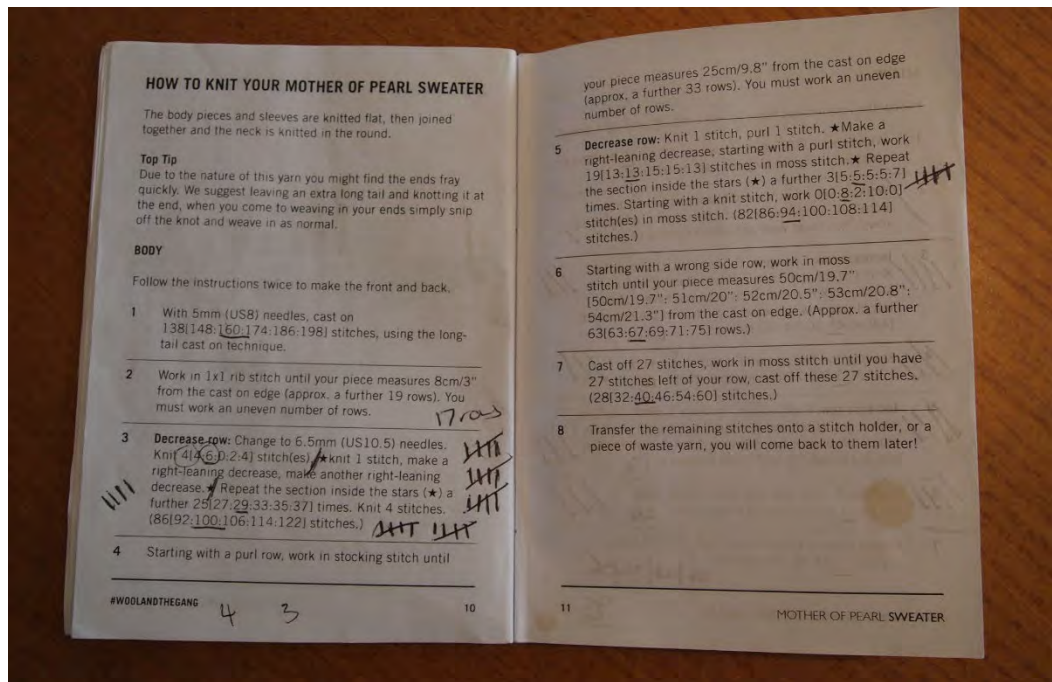 HOW TO KNIT YOUR MOTHER OF PEARL SWEATER
The body pieces and sleeves are knitted flat, then joined
together and the neck is knitted in the round.
Top Tip
Due to the nature of this yarn you might find the ends fray
quickly. We suggest leaving an extra long tail and knotting it at
the end, when you come to weaving in your ends simply snip
off the knot and weave in as normal.
BODY
Follow the instructions twice to make the front and back.
1 With 5mm (US8) needles, cast on
138[148:160:174:186:198] stitches, using the long-
tail cast on technique.
2 Work in 1x1 rib stitch until your piece measures 8cm/3"
from the cast on edge (approx. a further 19 rows). You
must work an uneven number of rows.
17 rows
3 Decrease row: Change to 6.5mm (US10.5) needles.
Knit 4[4:6:0:2:4] stitch(es). ★knit 1 stitch, make a
right-leaning decrease, make another right-leaning
decrease.★ Repeat the section inside the stars (★) a
further 25[27:29:33:35:37] times. Knit 4 stitches.
(86[92:100:106:114:122] stitches.)
4 Starting with a purl row, work in stocking stitch until
#WOOLANDTHEGANG
4 3
10
your piece measures 25cm/9.8" from the cast on edge
(approx. a further 33 rows). You must work an uneven
number of rows.
5 Decrease row: Knit 1 stitch, purl 1 stitch. ★Make a
right-leaning decrease, starting with a purl stitch, work
19[13:13:15:15:13] stitches in moss stitch.★ Repeat
the section inside the stars (★) a further 3[5:5:5:5:7]
times. Starting with a knit stitch, work 0[0:8:2:10:0]
stitch(es) in moss stitch. (82[86:94:100:108:114]
stitches.)
6 Starting with a wrong side row, work in moss
stitch until your piece measures 50cm/19.7"
[50cm/19.7": 51cm/20": 52cm/20.5": 53cm/20.8":
54cm/21.3"] from the cast on edge. (Approx. a further
63[63:67:69:71:75] rows.)
7 Cast off 27 stitches, work in moss stitch until you have
27 stitches left of your row, cast off these 27 stitches.
(28[32:40:46:54:60] stitches.)
8 Transfer the remaining stitches onto a stitch holder, or a
piece of waste yarn, you will come back to them later!
11
MOTHER OF PEARL SWEATER